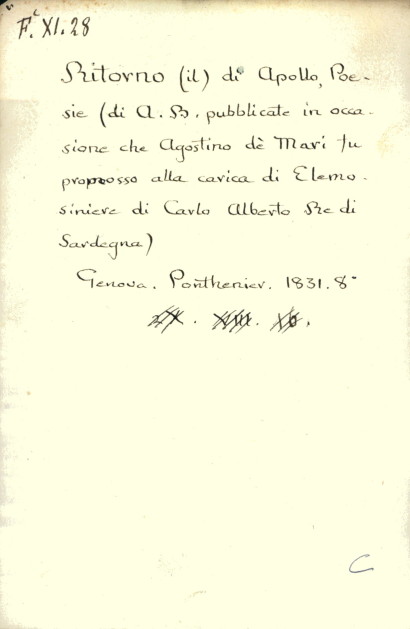 F.c XI. 28
Ritorno (il) di Apollo, Poe-
sie (di A. B. pubblicate in occa-
sione che Agostino dè Mari fu
promosso alla carica di Elemo-
siniere di Carlo Alberto Re di
Sardegna)
Genova. Ponthenier. 1831. 8°
C